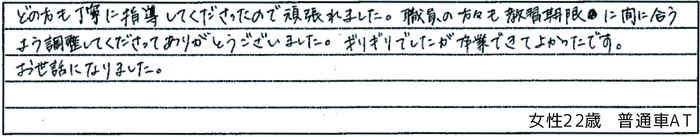 どの方も丁寧に指導してくださったので頑張れました。職員の方々も教習期限に間に合う
よう調整してくださってありがとうございました。ギリギリでしたが卒業できてよかったです。
お世話になりました。
女性22歳　普通車AT